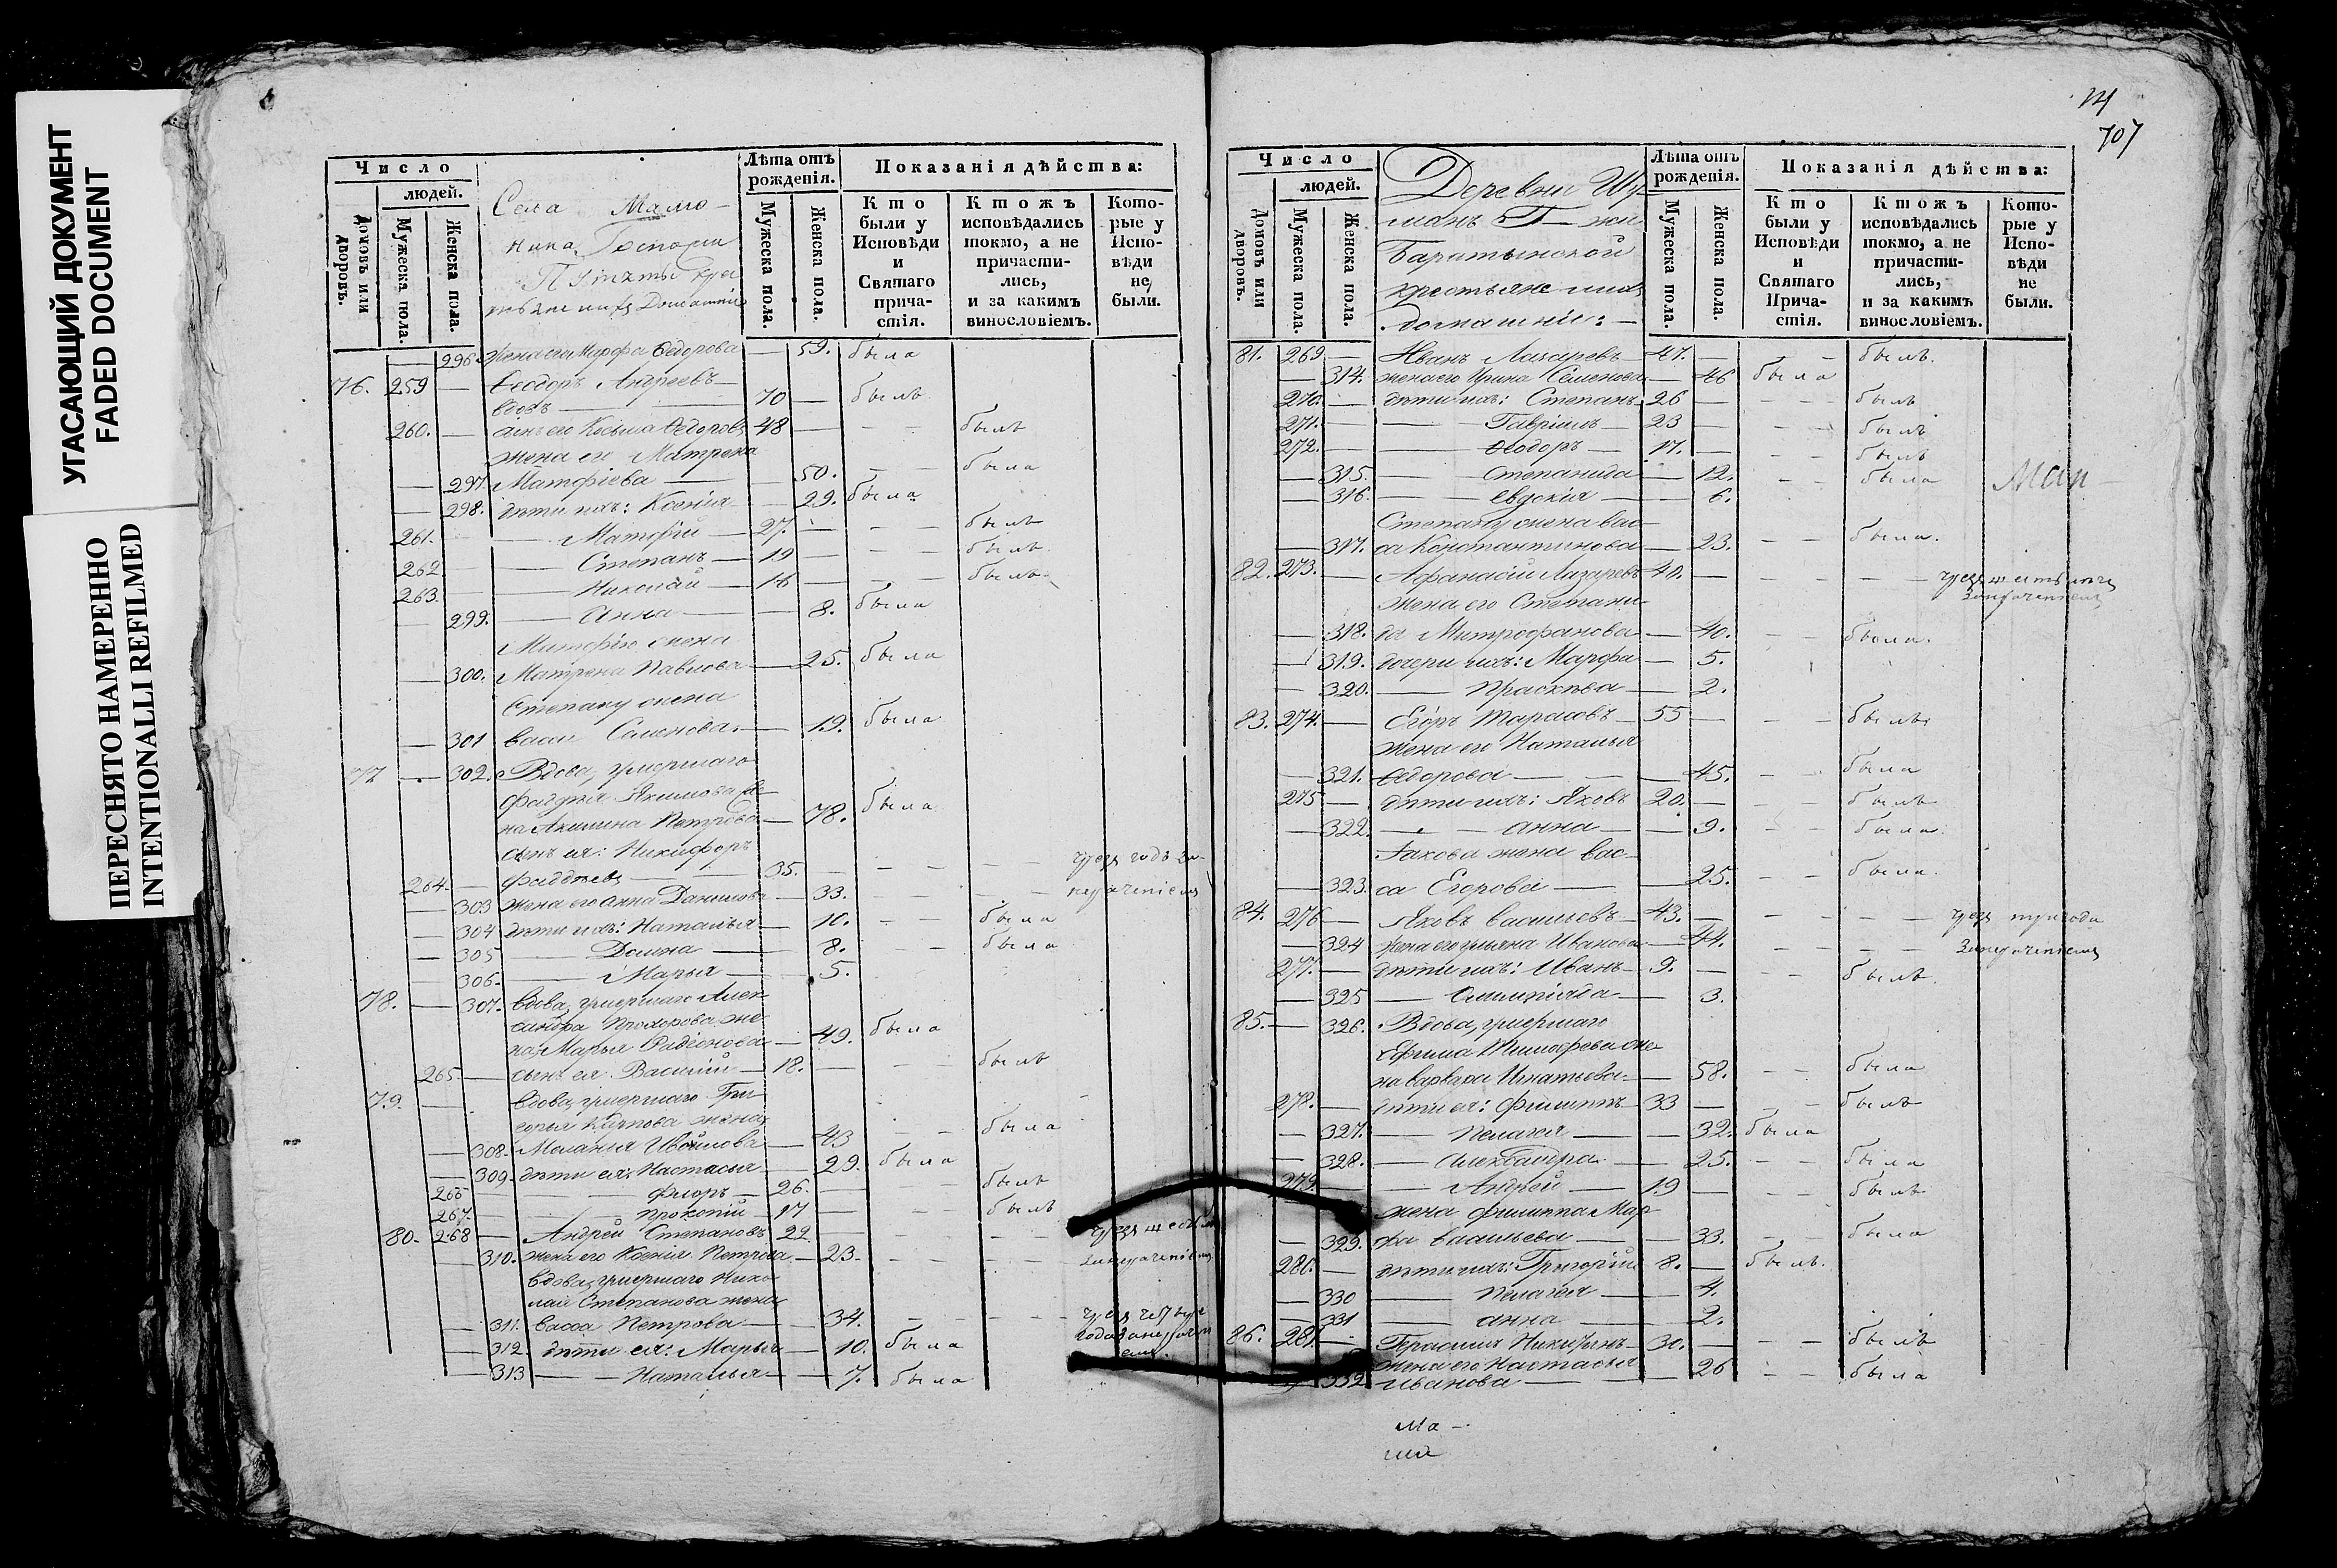 УГАСАЮЩИЙ ДОКУМЕНТ
FADED DOCUMENT
ПЕРЕСНЯТО НАМЕРЕННО
INTENTIONALLI REFILMED
Число
людей.
Домовъ или дворовъ.
Мужеска пола.
Женска пола.
Села Мамо-
нина Госпожи
крес
тьяне и ихъ Домашніе
Лѣта отъ рожденія.
Мужеска пола.
Женска пола.
Показанія дѣйства:
Кто были у Исповѣди и Святаго прича-стія.
Ктожъ исповѣдались токмо, а не причасти-лись, и за какимъ винословіемъ.
Кото-рые у Испо-вѣди не были.
296 жена его Марфа Ѳедорова — 59. была
76. 259 — Ѳеодоръ Андреевъ —
вдовъ — 70 — былъ
260. — сынъ его Косьма Ѳедоровъ 48 — — — былъ
жена его Матрена
— 297 Матфіева — 50. — — была
— 298. дѣти ихъ: Ксенія — 29. была
261. — Матфій — 27. — — — былъ
262 — Степанъ — 19 — — — былъ
263 — Николай — 16 — — — былъ
— 299. — Анна — 8. была
Матфію жена
— 300. Матрена Павлова — 25. была
Степану жена
— 301 Васса Семенова — 19. была
77 — 302. Вдова, умершаго
Фаддея Якимова же-
на Акилина Петрова — 78. была
сынъ ея: Никифоръ
264. — Фаддѣевъ — 35. — — — — чрезъ годъ за-
— 303 жена его Анна Данилова — 33. — — — нерачѣніемъ
— 304 дѣти ихъ: Наталья — 10. — — была
— 305 — Домна — 8. — — была
— 306. — Марья — 5.
78. — 307. Вдова, умершаго Алек-
сандра Прохорова же-
на Марья Радіонова — 49. была
265 — сынъ ея Василій — 18. — — — былъ
79. — Вдова, умершаго Гри-
горья Карпова жена
— 308. Маланья — 43 — — была
— 309. дѣти ея: Настасья — 29. была
266 — Флоръ — 26. — — былъ
267. — Прокопій — 17 — былъ
80. 268 — Андрей Степановъ 29 — — — — чрезъ
— 310. жена его Ксенія Петрова — 23. — — — — занерачѣніемъ
Вдова, умершаго Нико-
лая Степанова жена
— 311. Васса Петрова — 34. — — — — чрезъ четыре
— 312. дѣти ея: Марья — 10. была года занерачѣні
емъ.
— 313 — Наталья — 7. была
707
Число
людей.
Домовъ или дворовъ.
Мужеска пола.
Женска пола.
Деревни Шу-
манъ Г— жи
Баратынской
крестьяне и ихъ
домашніе: —
Лѣта отъ рожденія.
Мужеска пола.
Женска пола.
Показанія дѣйства:
Кто были у Исповѣди и Святаго Прича-стія.
Ктожъ исповѣдались токмо, а не причасти-лись, и за какимъ винословіемъ.
Кото-рые у Испо-вѣди не были.
81. 269 — Иванъ Лазаревъ — 47. — — былъ.
— 314. жена его Ирина Семенова — 46 была
270. — дѣти ихъ: Степанъ 26 — — — былъ
271. — Гавріилъ — 23 — — былъ
272. — Ѳеодоръ — 17. — — былъ
— 315. — Степанида — 12. — была
— 316. — Евдокія — 6.
Степану жена Вас-
— 317. са Константинова — 23. — — была.
82. 273. — Афанасій Лазаревъ 40. — — — — чрезъ
занерачѣніемъ
жена его Степани-
— 318. да Митрофанова — 40. — — была.
— 319. дочери ихъ: Марфа — 5.
— 320. — Прасковья — 2.
83. 274. — Егоръ Тарасовъ — 55 — — — былъ
жена его Наталья
— 321. Ѳедорова — — 45. — — была
275 — дѣти ихъ: Яковъ 20. — — — былъ
— 322 — Анна — 9. — — была
Якова жена Вас-
— 323. са Егорова — 25. — — была.
84. 276 — Яковъ Васильевъ — 43. — — — — чрезъ три года
— 324 жена его Ульяна Иванова — 44. — — — — занерачѣніемъ
277. — дѣти ихъ: Иванъ — 9. — — — былъ
— 325 — Олимпіада — 3.
85. — 326. Вдова, умершаго
Ефима Тимофеева же-
на Варвара Игнатьева — 58. — — была
278. — дѣти ея: Филиппъ — 33 — — — былъ
— 327. — Пелагея — 32. была
— 328. — Александра — 25. — — была
279 — Андрей — 19 — — — былъ
жена Филиппа Мар-
— 329. фа Васильева — 33. — была
280. — дѣти ихъ: Григорій 8. — былъ.
— 330 — Пелагея — 4.
— 331 — Анна — 2.
86. 281. — Герасимъ Никитинъ — 30. — — — былъ
жена его Настасья
332 Иванова — 26 — — была